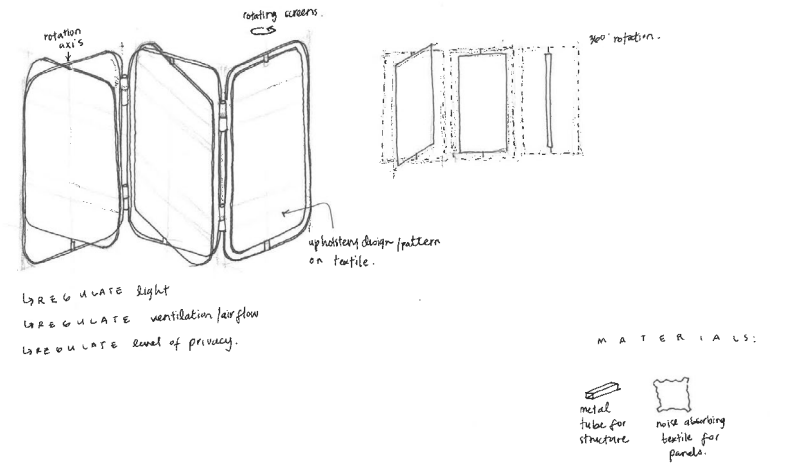 rotating screens.
rotation
axis
360° rotation.
upholstery design/pattern
on textile.
↳REGULATE light
↳REGULATE ventilation/airflow
↳REGULATE level of privacy.
MATERIALS:
metal
tube for
structure
noise absorbing
textile for
panels.